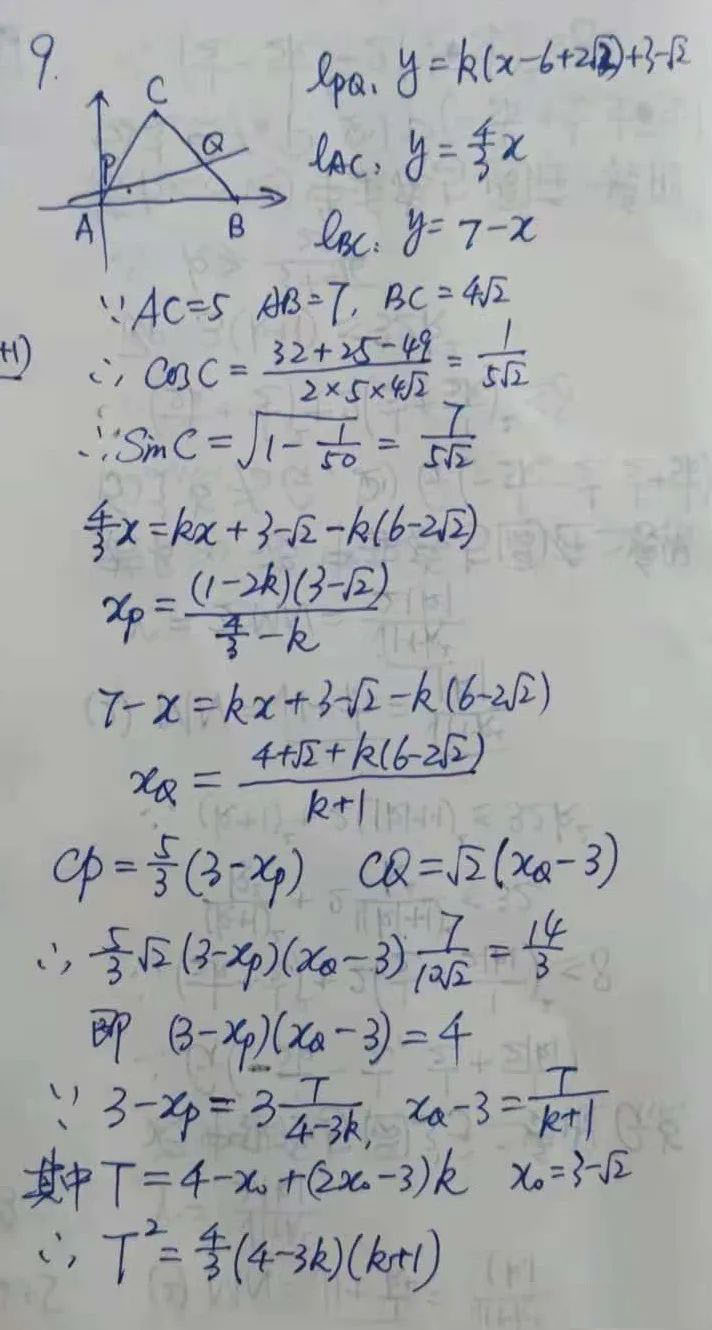 9.
C
P
Q
A
B
l_PQ: y=k(x-6+2√2)+3-√2
l_AC: y=4/3 x
l_BC: y=7-x
∵AC=5 AB=7, BC=4√2
+1)
∴ CosC=(32+25-49)/(2×5×4√2)=1/(5√2)
∴SinC=√(1-1/50)=7/(5√2)
4/3 x=kx+3-√2-k(6-2√2)
x_P=(1-2k)(3-√2)/(4/3-k)
7-x=kx+3-√2-k(6-2√2)
x_Q=(4+√2+k(6-2√2))/(k+1)
CP=5/3(3-x_P) CQ=√2(x_Q-3)
∴ 5/3 √2(3-x_P)(x_Q-3) 7/(10√2)=14/3
即 (3-x_P)(x_Q-3)=4
∵ 3-x_P=3 T/(4-3k), x_Q-3=T/(k+1)
其中 T=4-x₀+(2x₀-3)k x₀=3-√2
∴ T²=4/3(4-3k)(k+1)